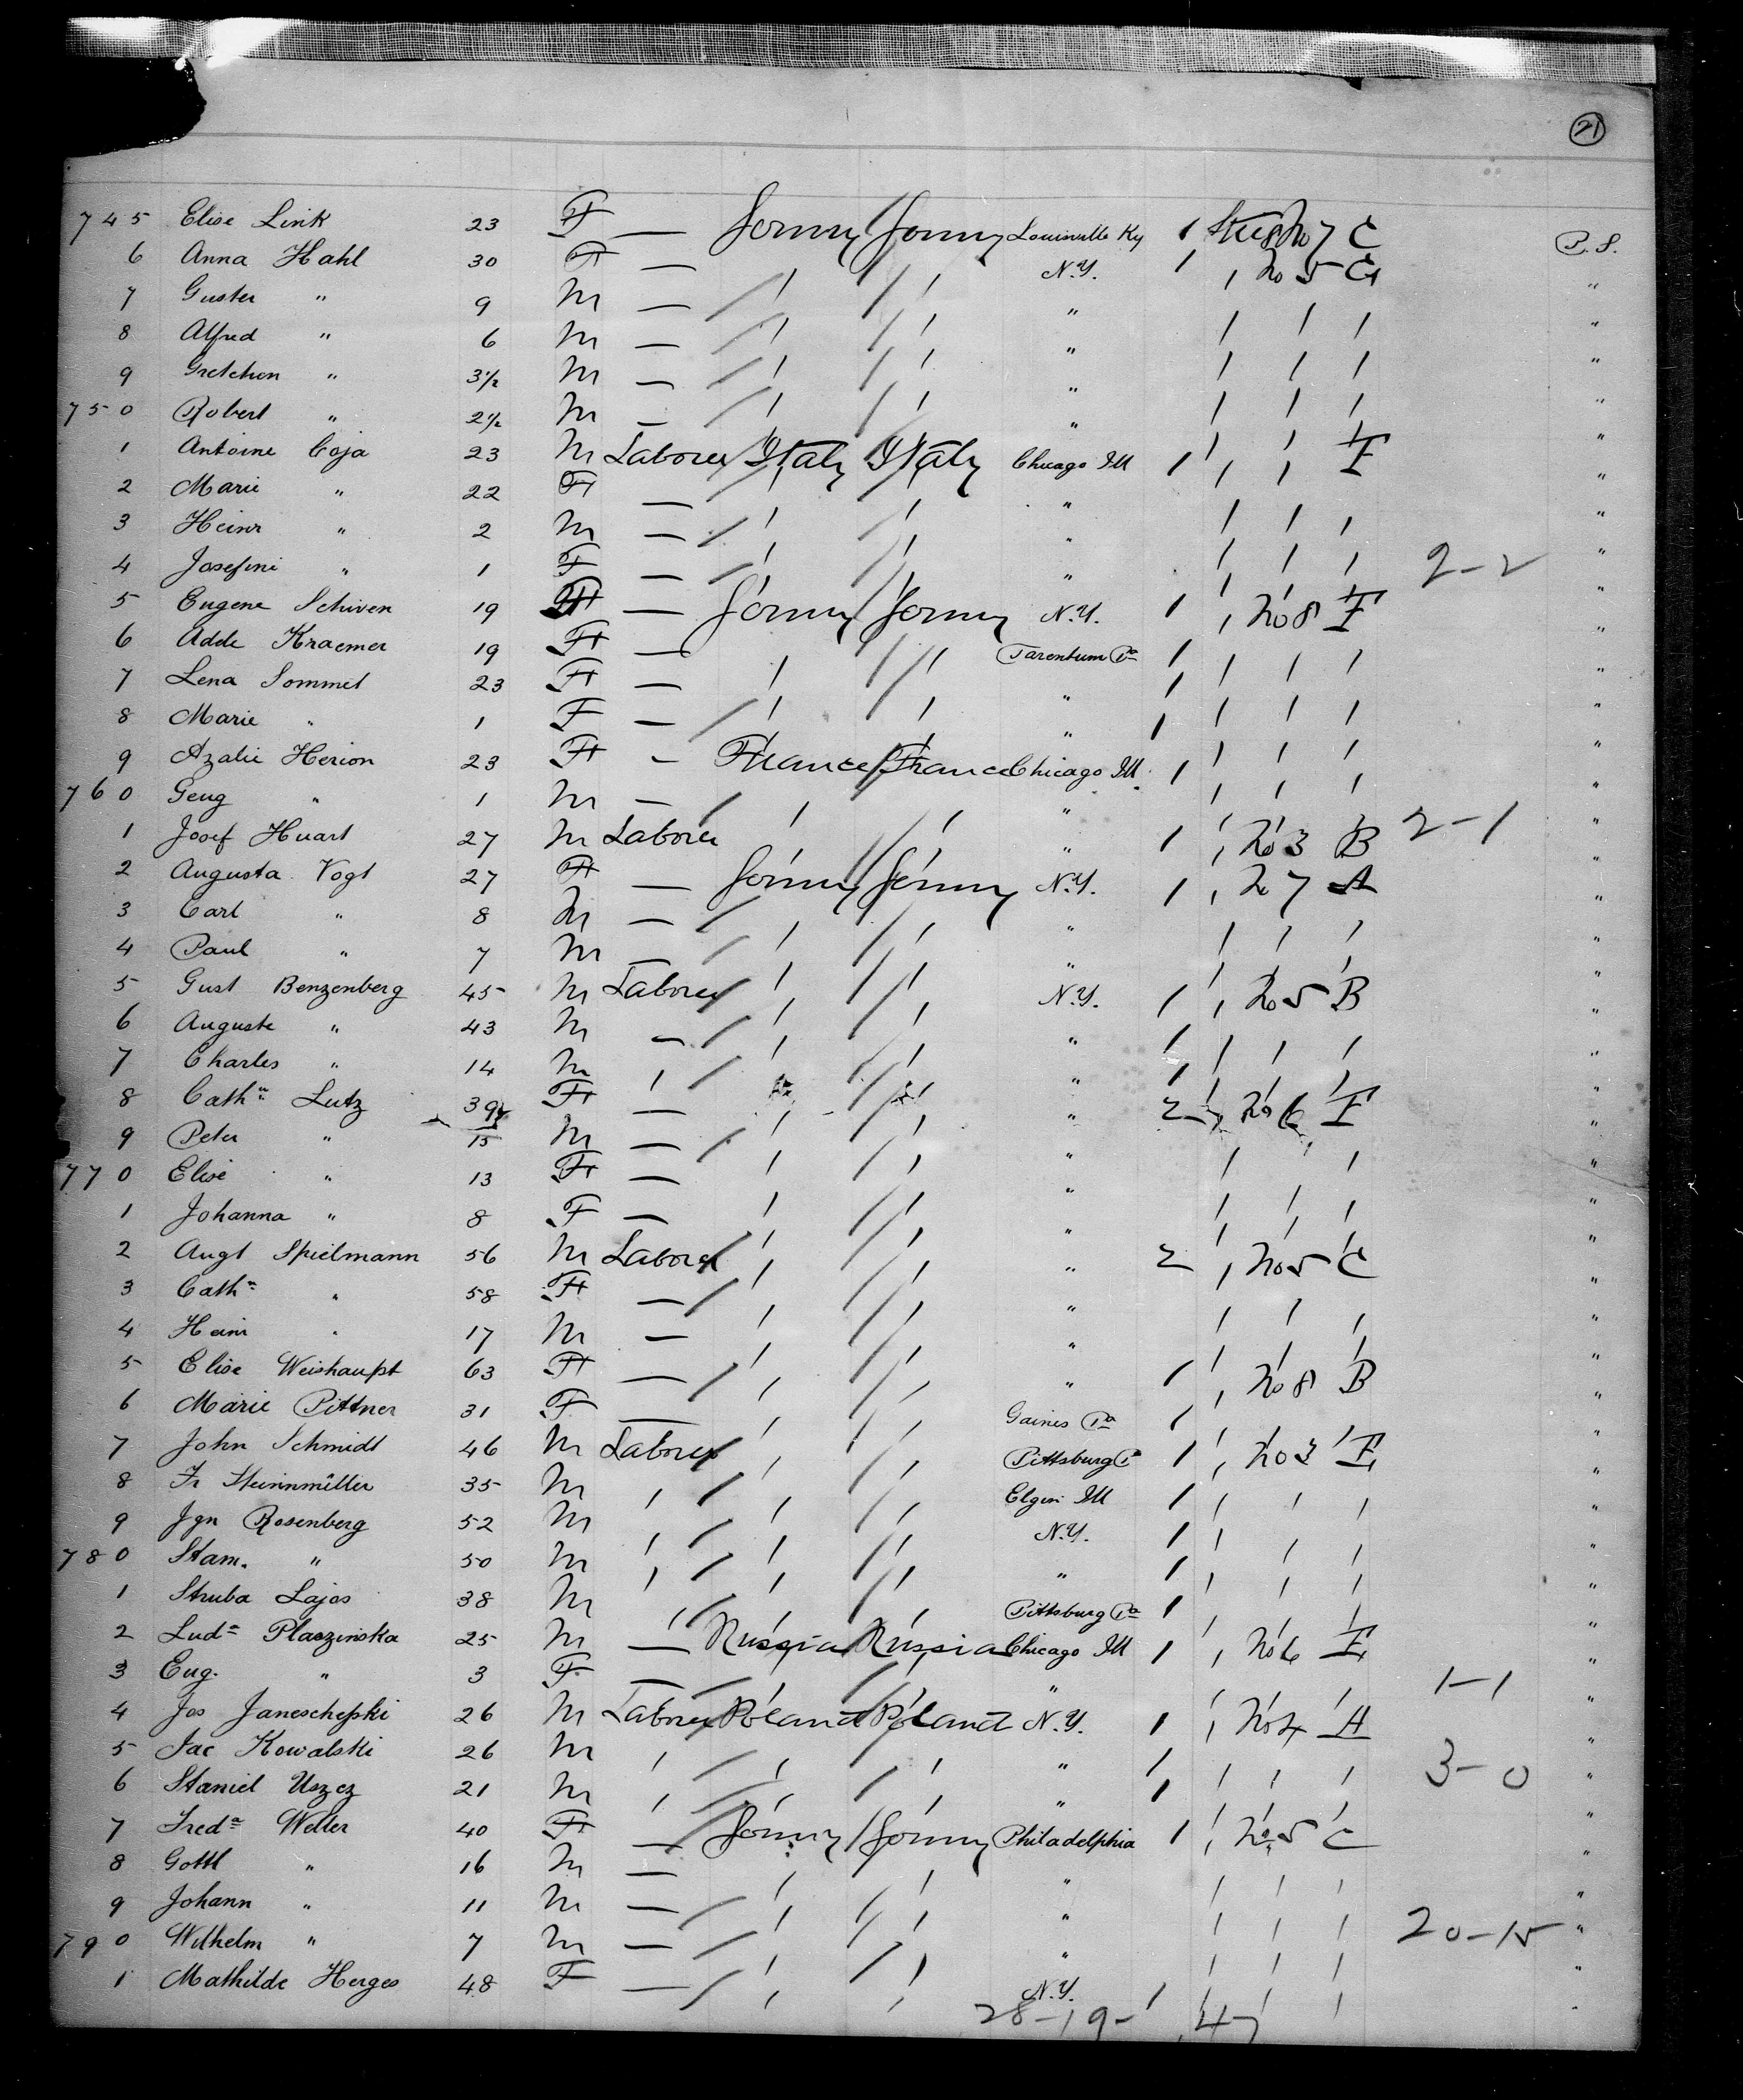 21
745 Elise Link 23 F — Germy Germy Louisville Ky 1 No 7 C P.S.
6 Anna Hahl 30 F — / / N.Y. 1 , No 5 C "
7 Guster " 9 M — / / " "
8 Alfred " 6 M — / / " "
9 Gretchen " 3½ M — / / " "
750 Robert " 2½ M — / / " "
1 Antoine Coja 23 M Laborer Italy Italy Chicago Ill 1 , , F "
2 Marie " 22 F — / / " "
3 Heinr " 2 M — / / " "
4 Josefini " 1 F — / / " 2-2 "
5 Eugene Schiven 19 F — Germy Germy N.Y. 1 , No 8 F "
6 Adde Kraemer 19 F — / / Tarentum Pa 1 "
7 Lena Sommet 23 F — / / " 1 "
8 Marie " 1 F — / / " 1 "
9 Azalie Herion 23 F — France France Chicago Ill. 1 "
760 Geug " 1 M — / / " "
1 Josef Huart 27 M Laborer / / " 1 , No 3 B 2-1 "
2 Augusta Vogt 27 F — Germy Germy N.Y. 1 , No 7 A "
3 Carl " 8 M — / / " "
4 Paul " 7 M — / / " "
5 Gust Benzenberg 45 M Laborer / / N.Y. 1 , No 5 B "
6 Auguste " 43 M — / / " 1 "
7 Charles " 14 M / / " 1 "
8 Cathn Lutz 39 F — / / " 2 , No 6 F "
9 Peter " 15 M — / / " "
770 Elise " 13 F — / / " "
1 Johanna " 8 F — / / " "
2 Augt Spielmann 56 M Laborer / / " 2 , No 5 C "
3 Cathn " 58 F — / / " "
4 Heinr " 17 M — / / " "
5 Elise Weishaupt 63 F — / / " 1 , No 8 B "
6 Marie Pittner 31 F — / / Gaines Pa 1 "
7 John Schmidt 46 M Laborer / / Pittsburg P 1 , No 3 F "
8 Fr Steinnmüller 35 M / / Elgin Ill 1 "
9 Jgn Rosenberg 52 M / / N.Y. 1 "
780 Stam. " 50 M / / " 1 "
1 Struba Lajos 38 M / / Pittsburg Pa 1 "
2 Luda Plaszinska 25 M — Russia Russia Chicago Ill 1 , No 6 F "
3 Eug. " 3 F — / / " 1-1 "
4 Jos Janeschepki 26 M Laborer Poland Poland N.Y. 1 , No 4 A "
5 Jac Kowalski 26 M / / " 1 3-0 "
6 Staniel Uszcz 21 M / / " 1 "
7 Freda Weller 40 F — Germy Germy Philadelphia 1 , No 5 C "
8 Gottl " 16 M — / / " "
9 Johann " 11 M — / / " "
790 Wilhelm " 7 M — / / " 20-15 "
1 Mathilde Herges 48 F — / / N.Y. 1 "
28-19- 47